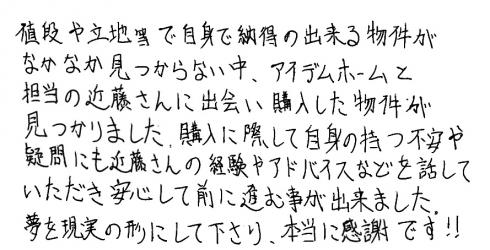 値段や立地等で自身で納得の出来る物件が
なかなか見つからない中、アイデムホームと
担当の近藤さんに出会い購入した物件が
見つかりました。購入に際して自身の持つ不安や
疑問にも近藤さんの経験やアドバイスなどを話して
いただき安心して前に進む事が出来ました。
夢を現実の形にして下さり、本当に感謝です!!